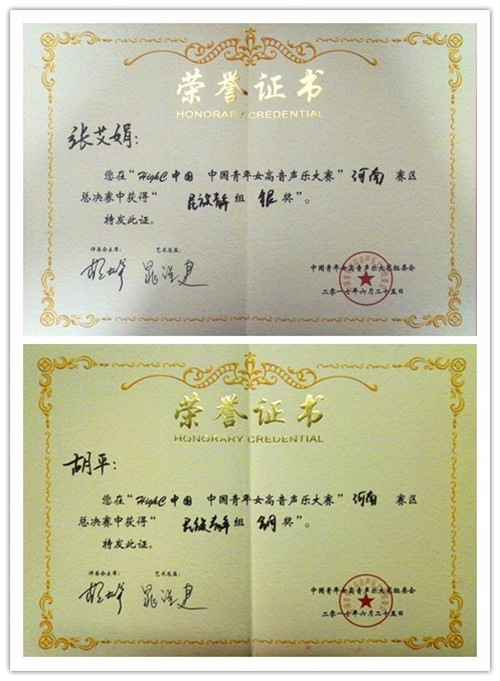 荣誉证书
HONORARY CREDENTIAL
张艾娟:
您在“HighC中国 中国青年女高音声乐大赛”河南 赛区
总决赛中获得“民族青年组 银奖”。
特发此证。
评委会主席: 艺术总监:
中国青年女高音声乐大赛组委会
二〇一七年六月二十五日
荣誉证书
HONORARY CREDENTIAL
胡平:
您在“HighC中国 中国青年女高音声乐大赛”河南 赛区
总决赛中获得“民族青年组 铜奖”。
特发此证。
评委会主席: 艺术总监:
中国青年女高音声乐大赛组委会
二〇一七年六月二十五日